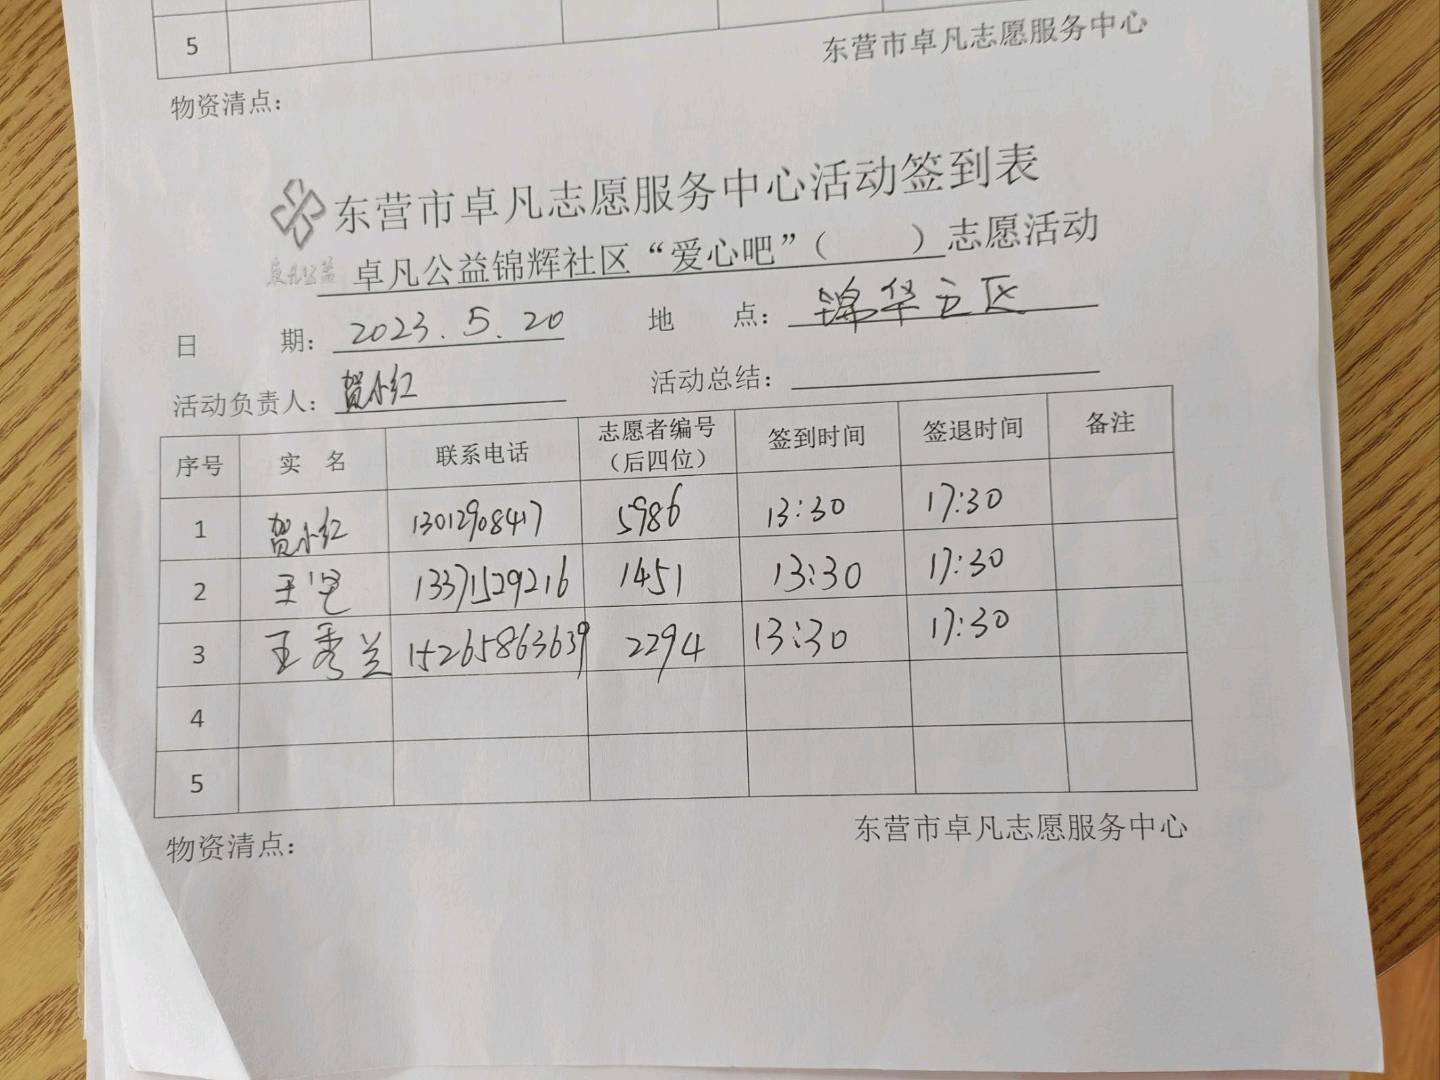 5
东营市卓凡志愿服务中心
物资清点：
东营市卓凡志愿服务中心活动签到表
卓凡公益
卓凡公益锦辉社区“爱心吧”（ ）志愿活动
日 期： 2023.5.20 地 点： 锦华社区
活动负责人： 贺小红 活动总结：
序号 实 名 联系电话 志愿者编号（后四位） 签到时间 签退时间 备注
1 贺小红 13012908417 5986 13:30 17:30
2 王 13371529216 1451 13:30 17:30
3 王秀兰 15265863639 2294 13:30 17:30
4
5
物资清点：
东营市卓凡志愿服务中心